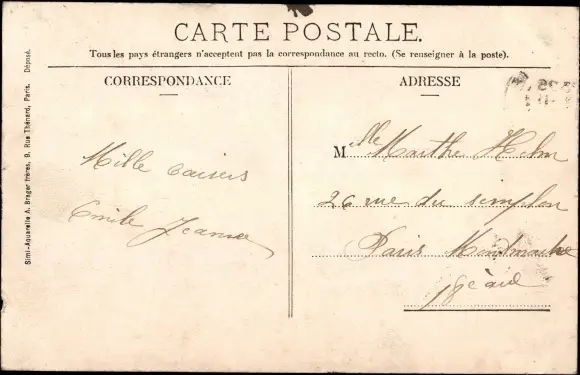 CARTE POSTALE.
Tous les pays étrangers n'acceptent pas la correspondance au recto. (Se renseigner à la poste).
CORRESPONDANCE
Mille baisers
Emile Jeanne
ADRESSE
Mlle Marthe Helm
26 rue du simplon
Paris Montmartre
18e arr
Simi-Aquarelle A. Breger frères, 9. Rue Thénard, Paris. Déposé.